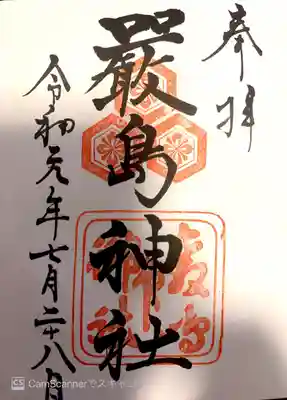 奉拝
嚴島神社
令和元年七月二十八日
CS CamScannerでスキャン